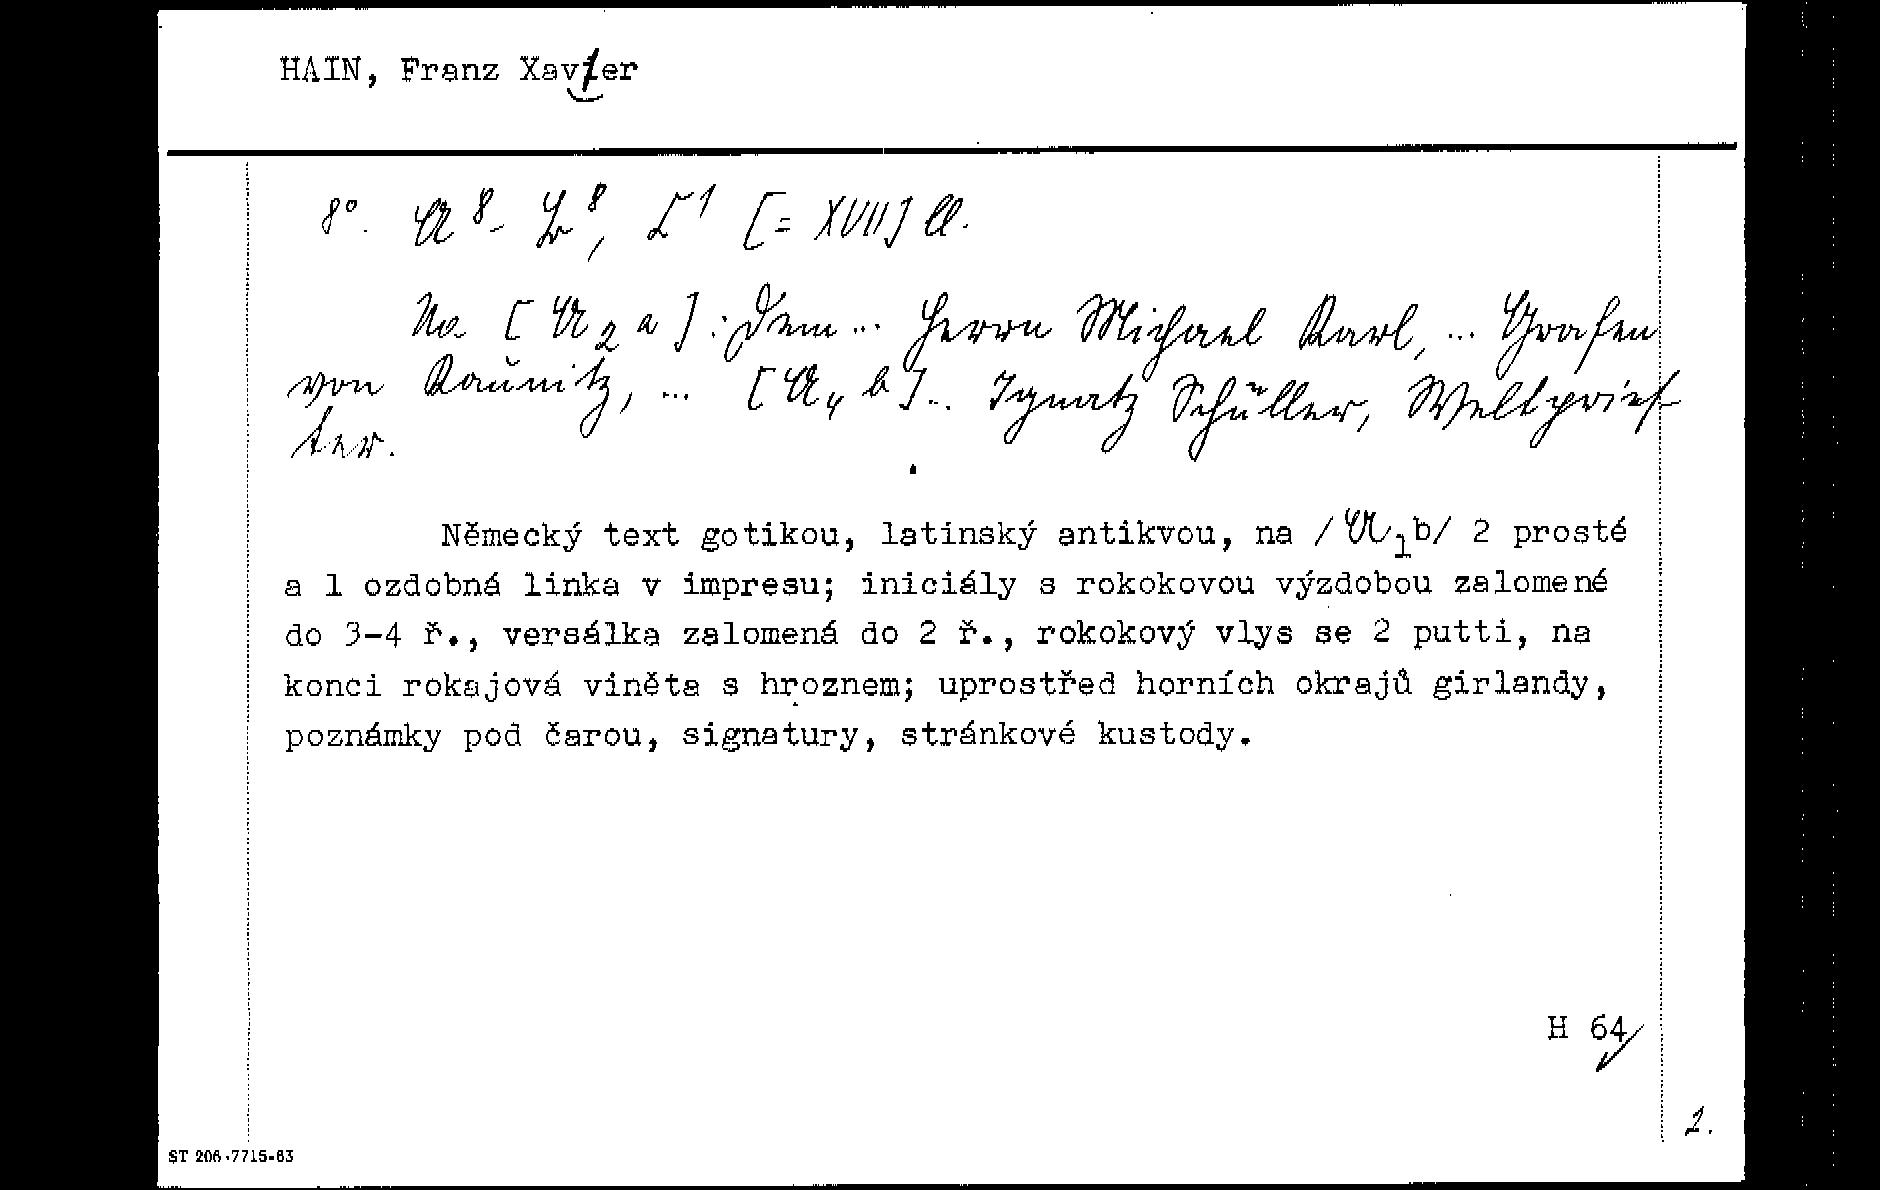 HAIN, Franz Xaver
8°. A⁸- B⁸, C¹ [= XVII] ll.
Na [A₂a]: Dem ... Herrn Michael Karl, ... Grafen
von Kaunitz, ... [A₄b] .. Ignatz Schüller, Weltpries-
ter.
Německý text gotikou, latinský antikvou, na /A₁b/ 2 prosté
a 1 ozdobná linka v impresu; iniciály s rokokovou výzdobou zalomené
do 3-4 ř., versálka zalomená do 2 ř., rokokový vlys se 2 putti, na
konci rokajová viněta s hroznem; uprostřed horních okrajů girlandy,
poznámky pod čarou, signatury, stránkové kustody.
H 64
2.
ST 206-7715-63